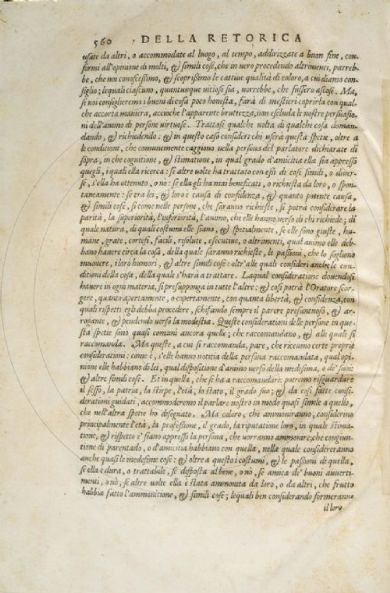 560 DELLA RETORICA
usate da altri, o accommodate al luogo, al tempo, addirizzate a buon fine, con-
formi all'opinione di molti, & simili cose, che in vero procedendo altrimenti, parreb-
be, che noi conoscessimo, & scoprissimo le cattive qualità di coloro, a cui diamo con-
siglio; le quali ciascuno, quantunque vitioso sia, vorrebbe, che fussero ascose. Ma,
se noi consiglieremo i buoni di cosa poco honesta, farà di mestieri coprirla con qual-
che accorta maniera, accioche l'apparente bruttezza, non escluda le nostre persuasio-
ni dell'animo de persone virtuose. Trattasi qualche volta di qualche cosa doman-
dando, & richiedendo: & in questo caso consideri chi userà questa spetie, oltre a
le conditioni, che communemente caggiono nella persona del parlatore dichiarate di
sopra, in che cognitione, & stimatione, in qual grado d'amicitia esso sia appresso
quegli, i quali essa ricerca: se altre volte ha trattato con essi di cose simili, o diver-
se, s'ella ha ottenuto, o nò: se ella gli ha mai beneficati, o richiesta da loro, o spon-
taneamente: se era, & è loro è causa di confidenza, & quanto potente causa,
& simili cose, si come nelle persone, che saranno richieste, si potrà considerare la
parità, la superiorità, l'inferiorità, l'animo, che elle hanno verso di chi richiede; di
quale natura, di quali costumi elle siano, & spetialmente, se elle sono giuste, hu-
mane, grate, cortesi, facili, risolute, esecutive, o altrimenti, qual animo elle deb-
bano havere circa la cosa, della quale saranno richieste, le passioni, che le sogliono
muovere, i loro humori, & altre simili cose: oltr'alle quali consideri anche le con-
ditioni della cosa, della quale s'harà a trattare. La qual consideratione dovendosi
havere in ogni materia, si presuppongа in tutte l'altre: & così potrà l'Oratore scor-
gere, quanto apertamente, o copertamente, con quanta libertà, & confidenza, con
quali rispetti egli debba procedere, schifando sempre il parere presontuoso, & ar-
rogante, & pendendo verso la modestia. Queste considerationi delle persone in que-
sta spetie sono quasi comuni ancora a quelle, che raccomandano; & alle quali si
raccomanda. Ma queste, a cui si raccomanda, pare, che ricevino certe proprie
considerationi: come è, s'elle hanno notitia della persona raccomandata, qual opi-
nione elle habbiano di lei, qual dispositione d'animo verso della medesima, o de' suoi;
& altre simili cose. Et in quella, che si ha a raccomandare: potremo risguardare
il sesso, la patria, la stirpe, l'età, lo stato, il grado suo; & da così fatte consi-
derationi guidati, accommodaremo il parlare nostro in modo quasi simile a quello,
che nell'altra spetie ho disegnato. Ma coloro, che ammoniranno, considerino
principalmente l'età, la professione, il grado, la riputatione loro, in quale stima-
tione, & rispetto e' siano appresso la persona, che vorranno ammonire; che congiun-
tione di parentado, o d'amicitia habbiano con quella, nella quale considereranno
anche quasi le medesime cose: & oltre a questo i costumi, & le passioni di quella,
se ella è dura, o trattabile, se disposta al bene, o nò, se amica de' buoni avverti-
menti, o nò; se altre volte ella è stata ammonita da loro, o da altri, che frutto
habbia fatto l'ammonitione, & simili cose; le quali ben considerando formeranno
il loro